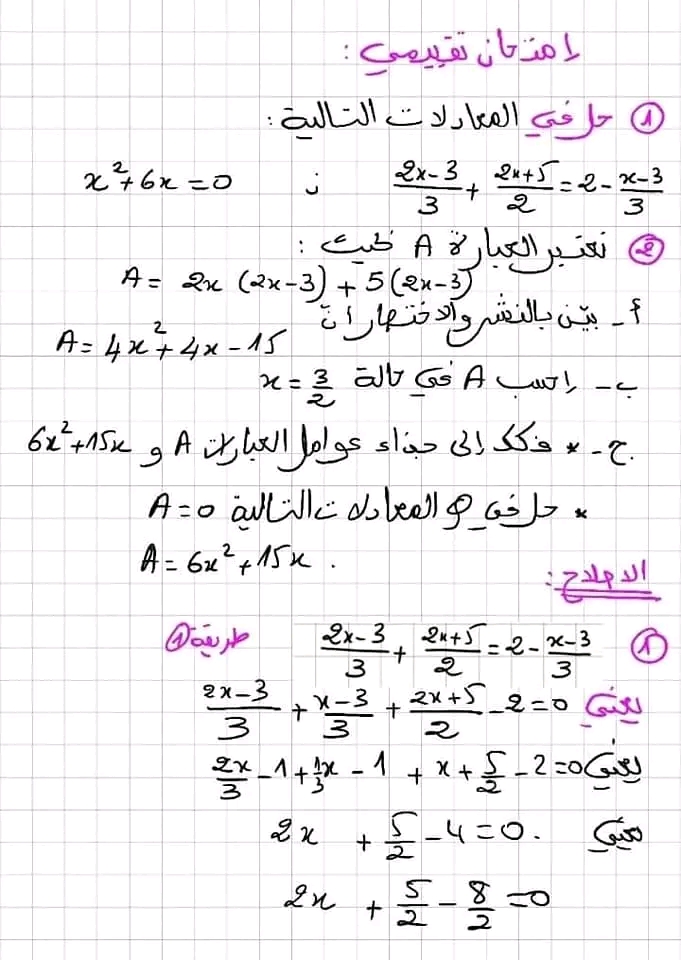 إمتحان تقييمي :
① حل في المعادلات التالية :
(2x-3)/3 + (2x+5)/2 = 2 - (x-3)/3 ; x²+6x=0
② نعتبر العبارة A حيث :
A = 2x (2x-3) + 5(2x-3)
أ- بيّن بالنشر والاختصار انّ
A = 4x²+4x-15
ب- احسب A في حالة x = 3/2
ج- * فكك إلى جذاء عوامل العبارات A و 6x²+15x
* حل في المعادلات التالية A=0
A = 6x²+15x .
الاصلاح :
① (2x-3)/3 + (2x+5)/2 = 2 - (x-3)/3 طريقة ①
يعني (2x-3)/3 + (x-3)/3 + (2x+5)/2 - 2 = 0
يعني 2x/3 - 1 + 1/3 x - 1 + x + 5/2 - 2 = 0
يعني 2x + 5/2 - 4 = 0.
2x + 5/2 - 8/2 = 0